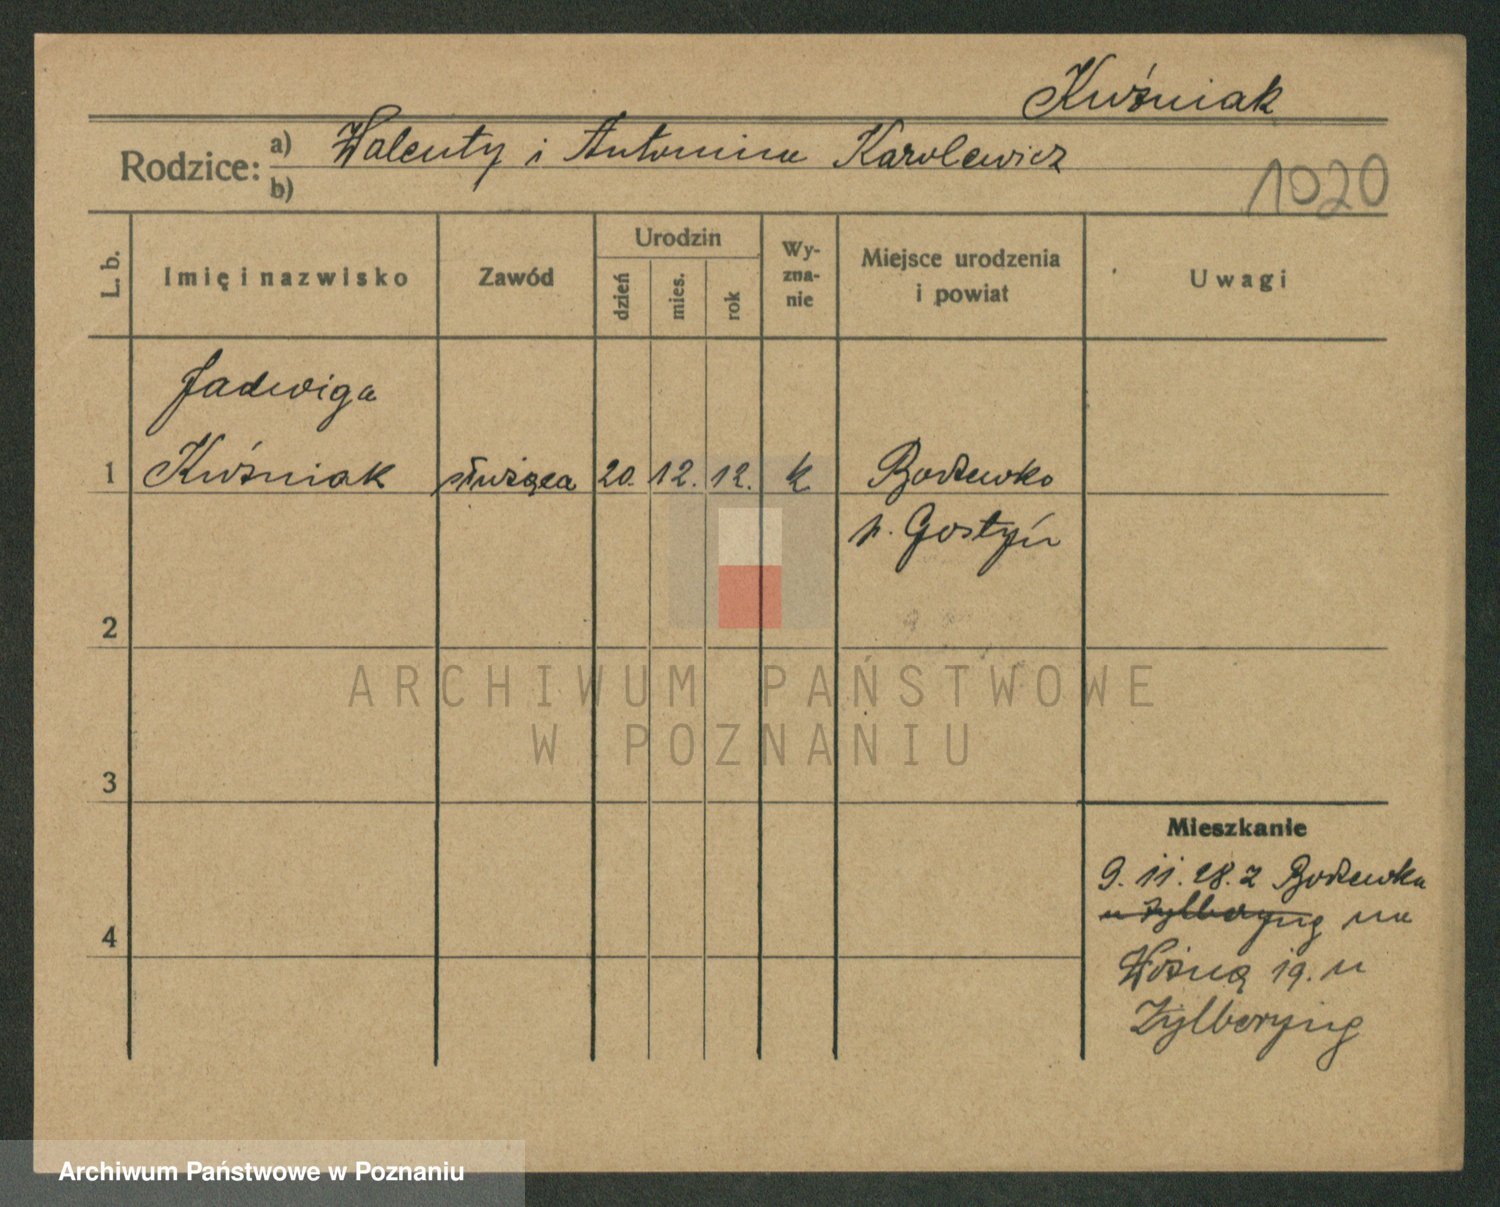 Kuźniak
Rodzice: a) Walenty i Antonina Karolewicz
b)
1020
L. b.
Imię i nazwisko
Zawód
Urodzin
dzień
mies.
rok
Wy-
zna-
nie
Miejsce urodzenia
i powiat
Uwagi
Jadwiga
1 Kuźniak służąca 20. 12. 12. k Bodzewko
p. Gostyń
2
3
4
Mieszkanie
9. 11. 28. z Bodzewka
u Zylberyng na
Woźną 19. u
Zylberyng
ARCHIWUM PAŃSTWOWE
W POZNANIU
Archiwum Państwowe w Poznaniu